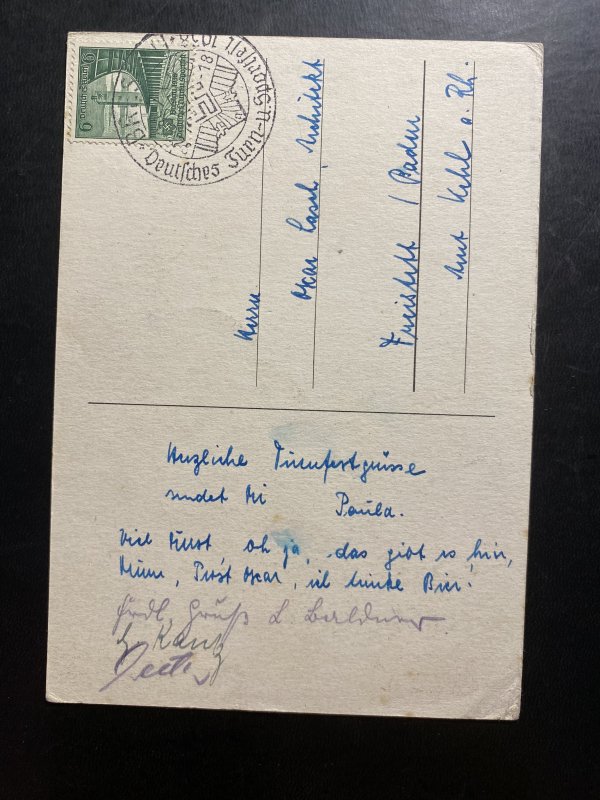 Deutsches Turn-u-Sportfest 1938
6
Herrn
Oskar Architekt
Freistett / Baden
Amt Kehl a. Rh.
Herzliche Turnfestgrüsse
sendet Paula.
Viel Durst, oh ja, das gibt es hier,
Prost Oskar, ich trinke Bier!
Frdl. Gruß L.